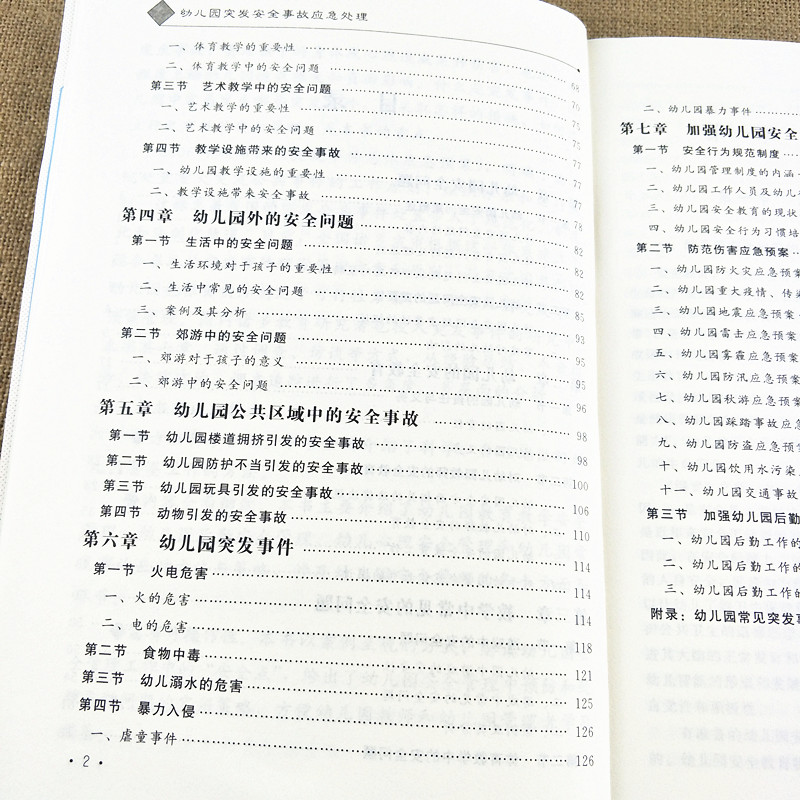 幼儿园突发安全事故应急处理
一、体育教学的重要性 68
二、体育教学中的安全问题 70
第三节 艺术教学中的安全问题 75
一、艺术教学的重要性 75
二、艺术教学中的安全问题 77
第四节 教学设施带来的安全事故 77
一、幼儿园教学设施的重要性 77
二、教学设施带来安全事故 78
第四章 幼儿园外的安全问题 82
第一节 生活中的安全问题 82
一、生活环境对于孩子的重要性 82
二、生活中常见的安全问题 85
三、案例及其分析 93
第二节 郊游中的安全问题 95
一、郊游对于孩子的意义 95
二、郊游中的安全问题 96
第五章 幼儿园公共区域中的安全事故 98
第一节 幼儿园楼道拥挤引发的安全事故 98
第二节 幼儿园防护不当引发的安全事故 100
第三节 幼儿园玩具引发的安全事故 106
第四节 动物引发的安全事故 110
第六章 幼儿园突发事件 114
第一节 火电危害 114
一、火的危害 114
二、电的危害 118
第二节 食物中毒 121
第三节 幼儿溺水的危害 125
第四节 暴力入侵 126
一、虐童事件 126
· 2 ·
二、幼儿园暴力事件
第七章 加强幼儿园安全
第一节 安全行为规范制度
一、幼儿园管理制度的内涵
二、幼儿园工作人员及幼儿
三、幼儿园安全教育的现状
四、幼儿园安全行为习惯培
第二节 防范伤害应急预案
一、幼儿园防火灾应急预案
二、幼儿园重大疫情、传染
三、幼儿园地震应急预案
四、幼儿园雷击应急预案
五、幼儿园雾霾应急预案
六、幼儿园防汛应急预案
七、幼儿园秋游应急预案
八、幼儿园踩踏事故应急
九、幼儿园防盗应急预案
十、幼儿园饮用水污染
十一、幼儿园交通事故
第三节 加强幼儿园后勤
一、幼儿园后勤工作的
二、幼儿园后勤工作的
三、幼儿园后勤工作的
附录：幼儿园常见突发事